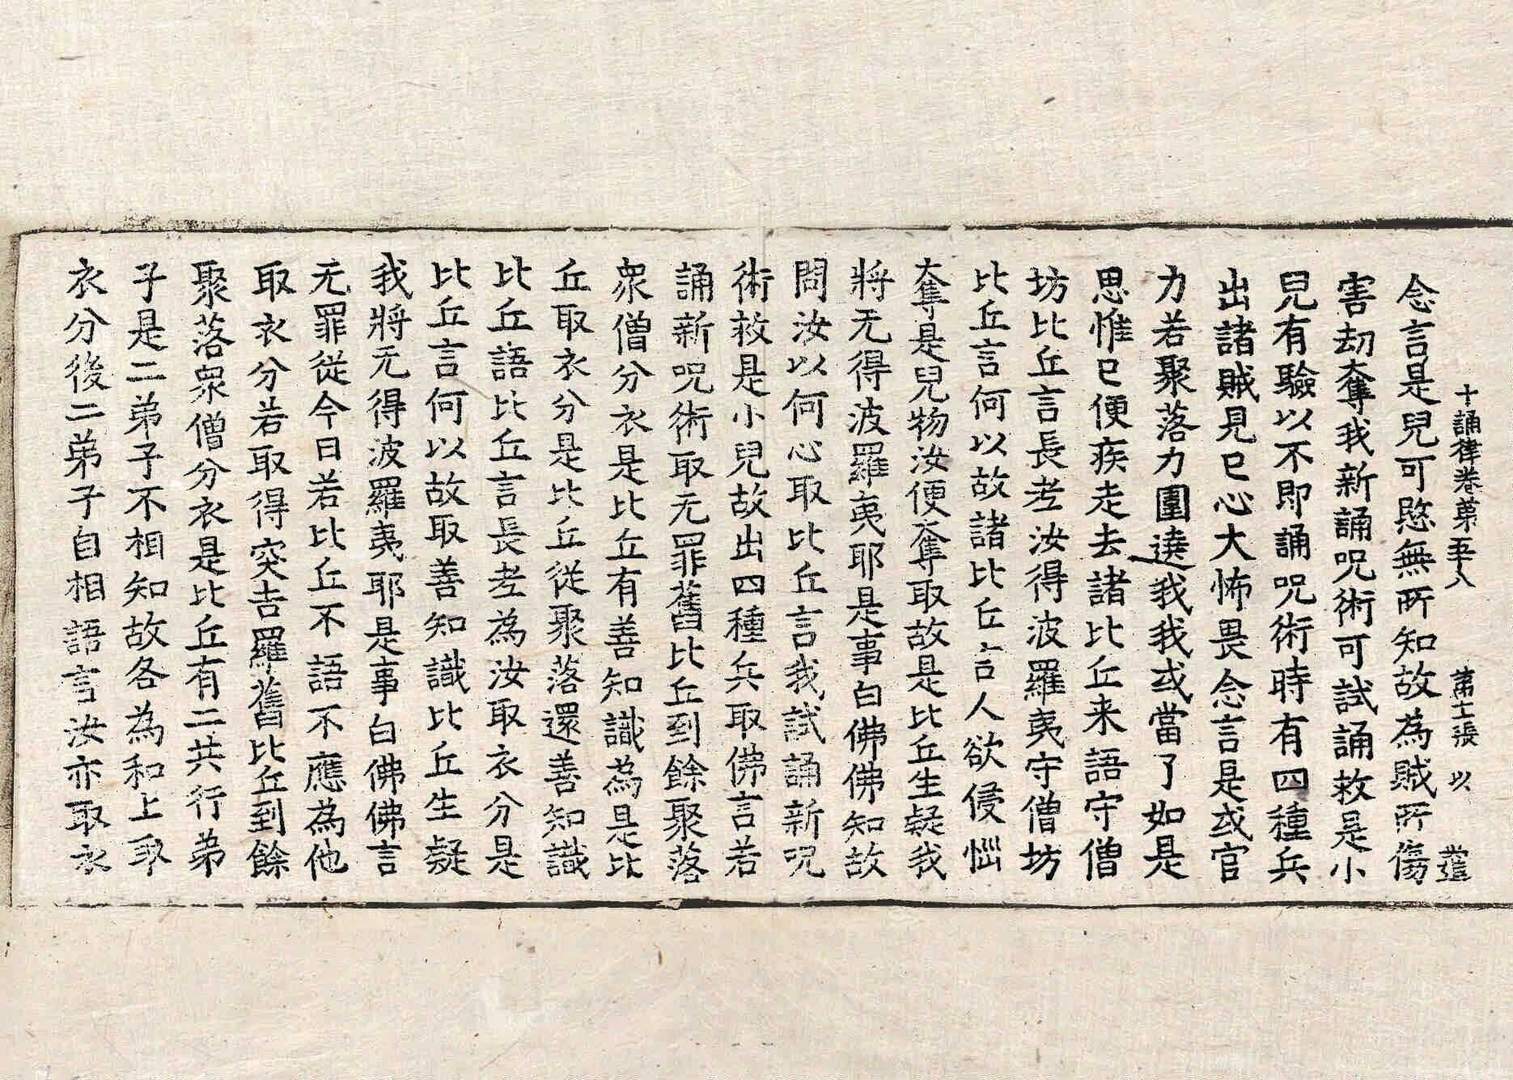 十誦律卷第五十八　第十二張　以　
念言是兒可愍無所知故為賊所傷
害劫奪我新誦呪術可試誦救是小
兒有驗以不即誦呪術時有四種兵
出諸賊見已心大怖畏念言是或官
力若聚落力圍遶我我或當了如是
思惟已便疾走去諸比丘来語守僧
坊比丘言長老汝得波羅夷守僧坊
比丘言何以故諸比丘言人欲侵惱
奪是兒物汝便奪取故是比丘生疑我
將无得波羅夷耶是事白佛佛知故
問汝以何心取比丘言我試誦新呪
術救是小兒故出四種兵取佛言若
誦新呪術取无罪舊比丘到餘聚落
衆僧分衣是比丘有善知識為是比
丘取衣分是比丘從聚落還善知識
比丘語比丘言長老為汝取衣分是
比丘言何以故取善知識比丘生疑
我將无得波羅夷耶是事白佛佛言
无罪從今日若比丘不語不應為他
取衣分若取得突吉羅舊比丘到餘
聚落衆僧分衣是比丘有二共行弟
子是二弟子不相知故各為和上取
衣分後二弟子自相語言汝亦取衣